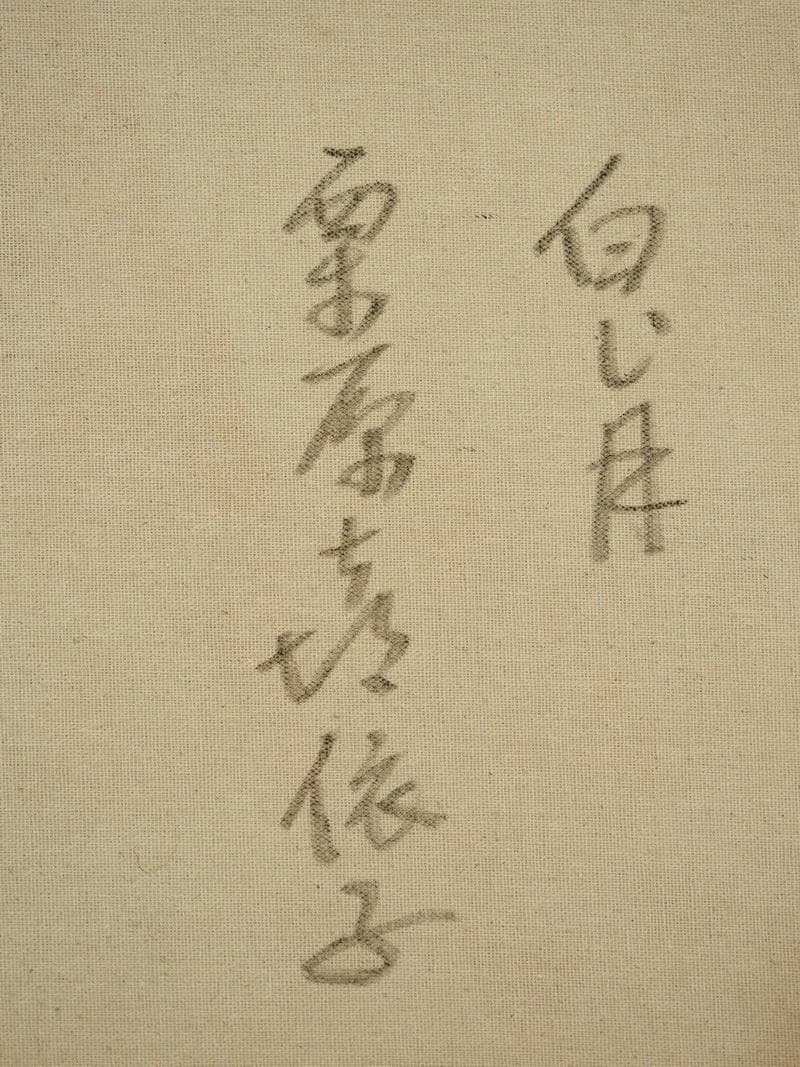 白い月
栗原喜依子